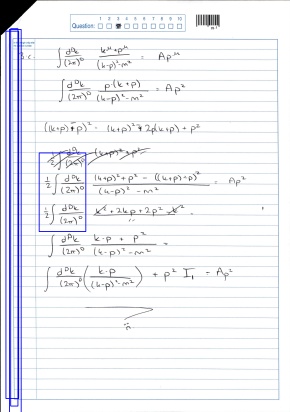 1 2 3 4 5 6 7 8 9 10
Question:
3.c. ∫ d^D k/(2π)^D (k^μ + p^μ)/((k-p)² - m²) = A p^μ
∫ d^D k/(2π)^D p·(k+p)/((k-p)² - m²) = A p²
((k+p) - p)² = (k+p)² - 2p(k+p) + p²
½ ∫ d^D k/(2π)^D (k+p)² + p²
½ ∫ d^D k/(2π)^D ((k+p)² + p² - ((k+p)-p)²)/((k-p)² - m²) = A p²
½ ∫ d^D k/(2π)^D k² + 2kp + 2p² - k²
∫ d^D k/(2π)^D (k·p + p²)/((k-p)² - m²) =
∫ d^D k/(2π)^D (k·p/((k-p)² - m²)) + p² I₁ = A p²